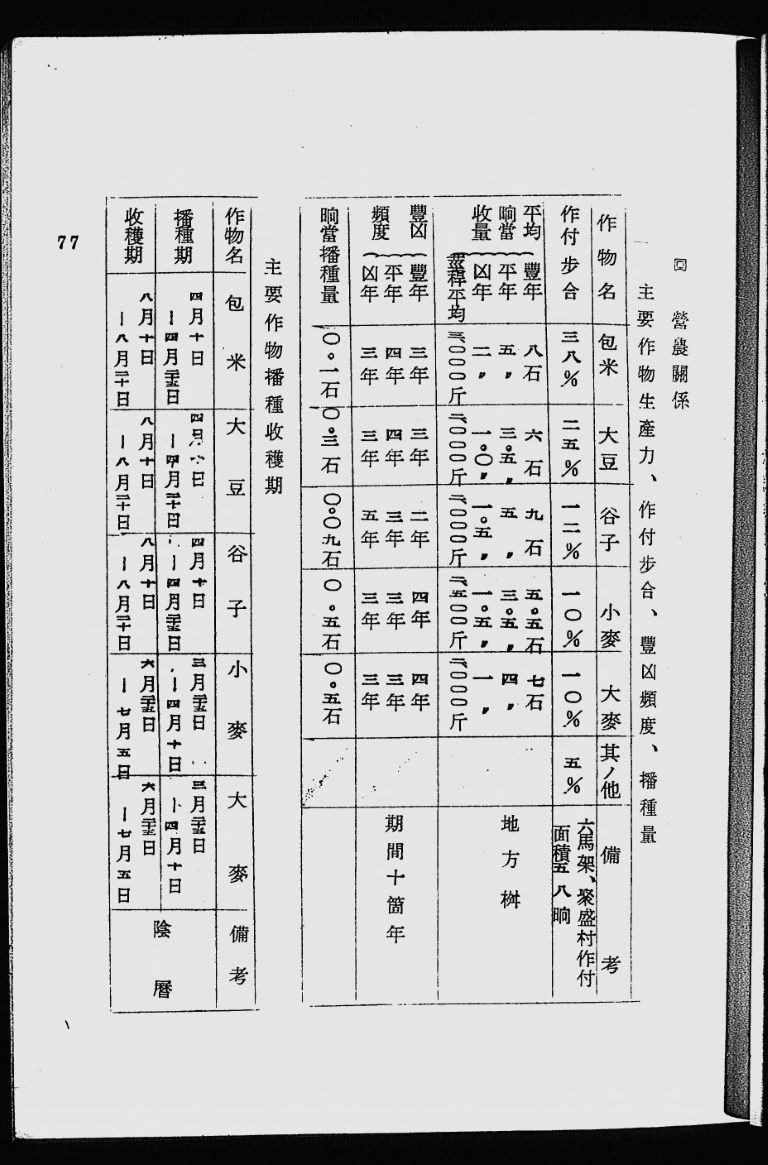 回 營農關係
主要作物生產力、作付步合、豐凶頻度、播種量
作物名 包米 大豆 谷子 小麥 大麥 其ノ他 備考
作付步合 三八% 二五% 一二% 一〇% 一〇% 五% 六馬架、聚盛村作付面積五八晌
平均晌當收量 豐年 八石 六石 九石 五.五石 七石 地方桝
平年 五〃 三.五〃 五〃 三.五〃 四〃
凶年 二〃 一.〇〃 一.五〃 一.五〃 一〃
稈平均 〇〇〇斤 〇〇〇斤 〇〇〇斤 五〇〇斤 〇〇〇斤
豐凶頻度 豐年 三年 三年 二年 四年 四年 期間十箇年
平年 四年 四年 三年 三年 三年
凶年 三年 三年 五年 三年 三年
晌當播種量 〇.一石 〇.三石 〇.〇九石 〇.五石 〇.五石
主要作物播種收穫期
作物名 包米 大豆 谷子 小麥 大麥 備考
播種期 四月十日—四月二十五日 四月十日—四月二十日 四月十日—四月二十五日 三月二十五日—四月十日 三月二十五日—四月十日 陰曆
收穫期 八月十日—八月二十日 八月十日—八月二十日 八月十日—八月二十日 六月二十五日—七月五日 六月二十五日—七月五日
77